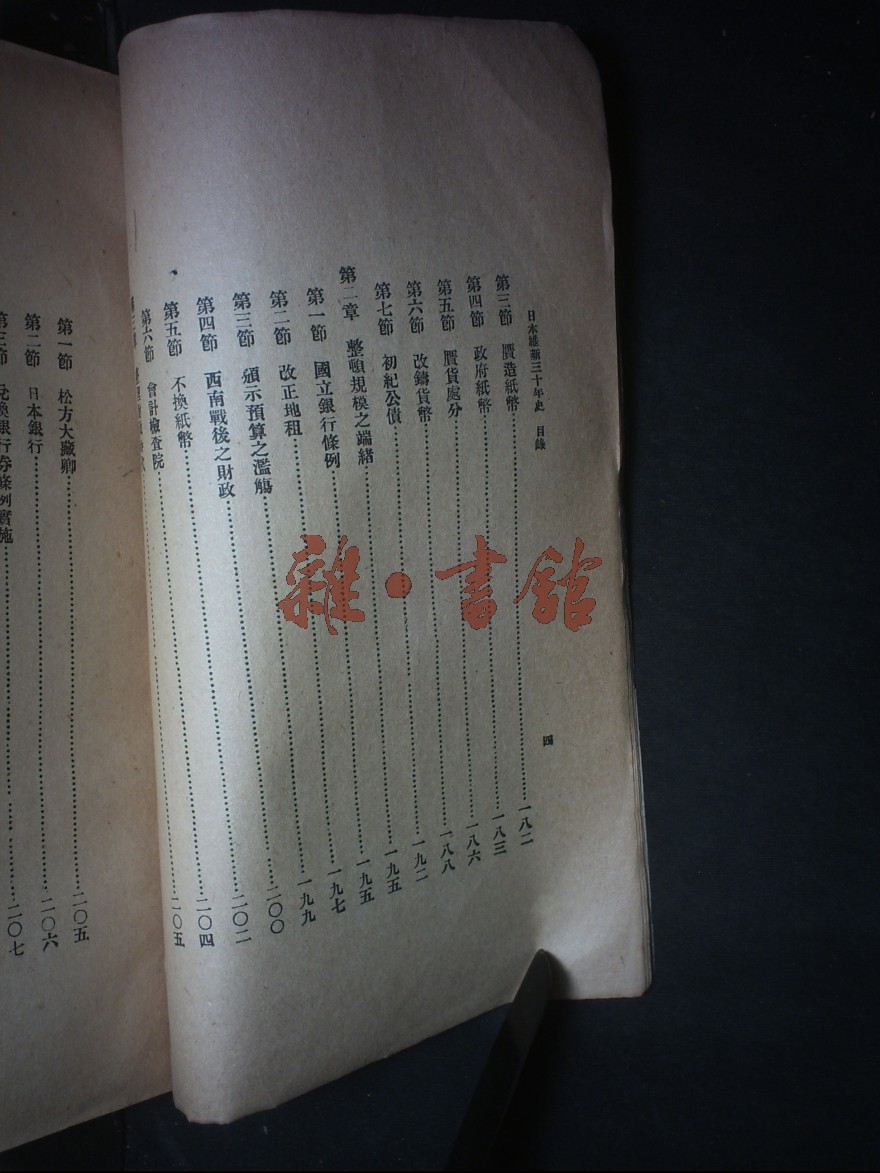 日本維新三十年史 目錄
四
第三節 贋造紙幣 一八二
第四節 政府紙幣 一八三
第五節 贋貨處分 一八六
第六節 改鑄貨幣 一八八
第七節 初紀公債 一九二
第二章 整頓規模之端緒 一九五
第一節 國立銀行條例 一九五
第二節 改正地租 一九七
第三節 頒示預算之濫觴 一九九
第四節 西南戰後之財政 二〇〇
第五節 不換紙幣 二〇二
第六節 會計檢査院 二〇四
二〇五
第一節 松方大藏卿 二〇五
第二節 日本銀行 二〇六
第三節 兌換銀行券條例實施 二〇七
雜·書館